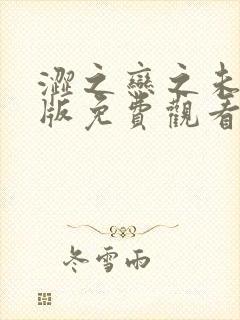 澀之戀之未
版免費觀看
冬雪雨